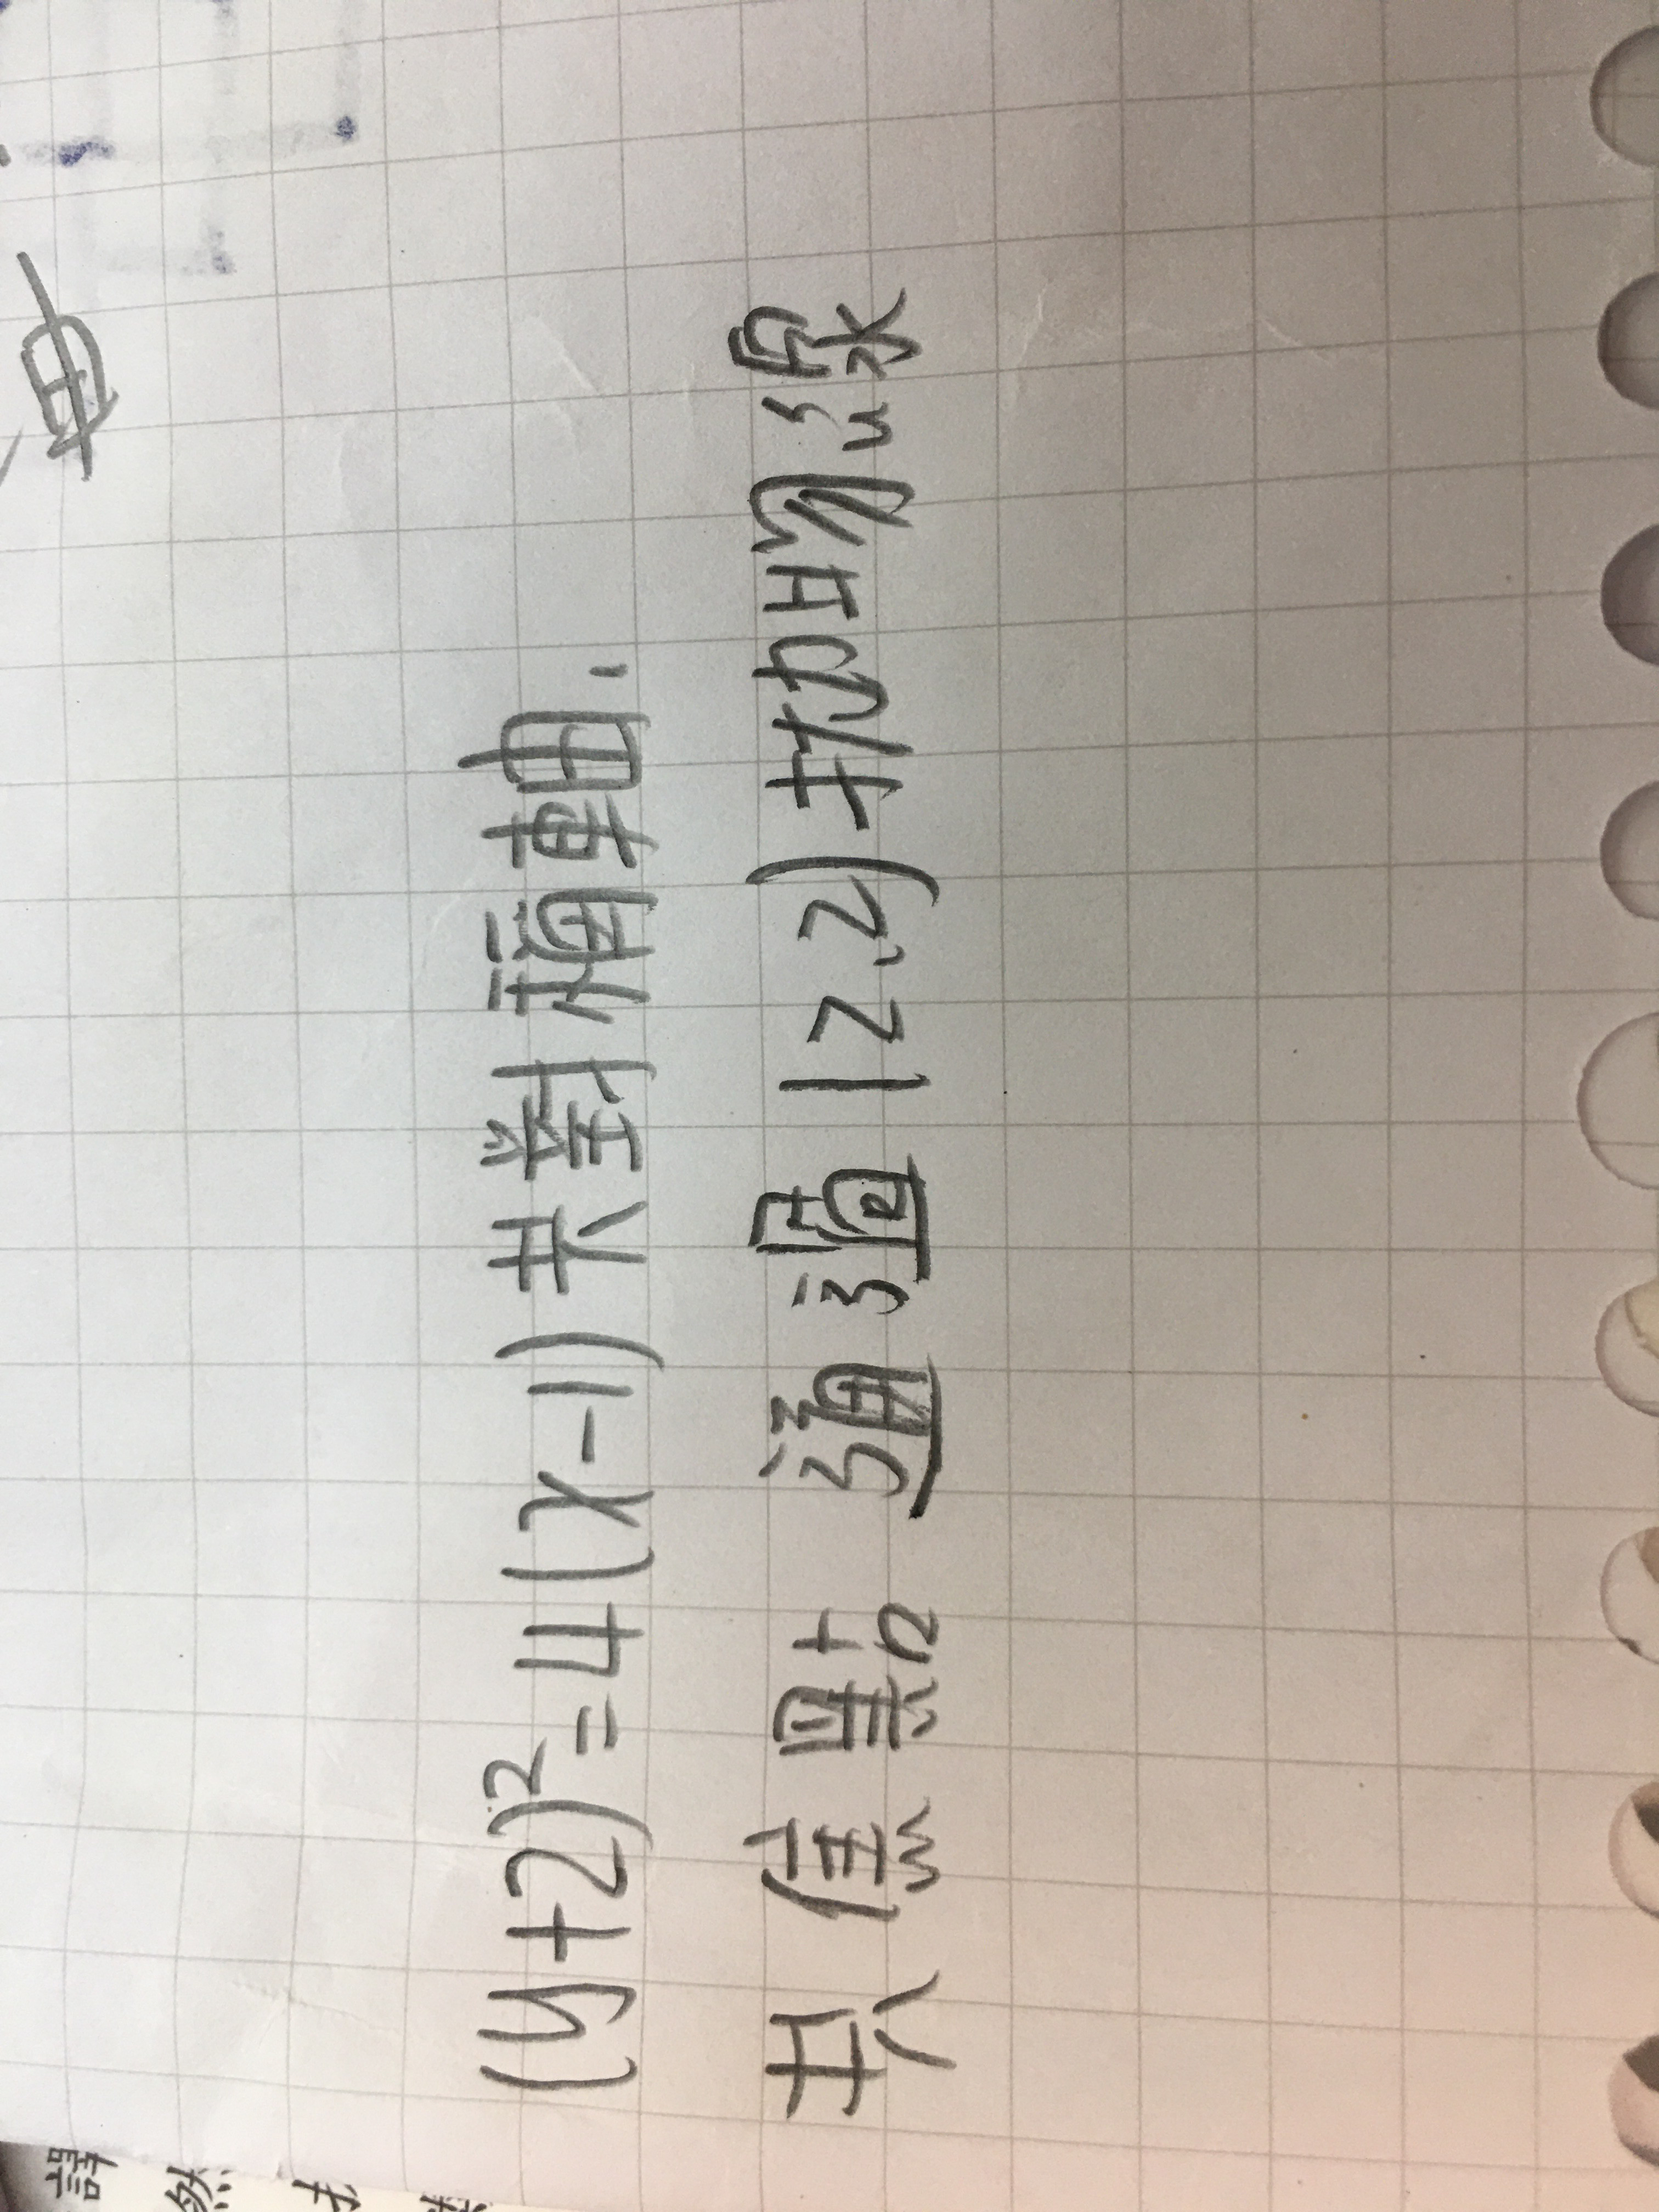 (y+2)²=4(x-1)共對稱軸.
共焦點 通過(2,2)拋物線
軸